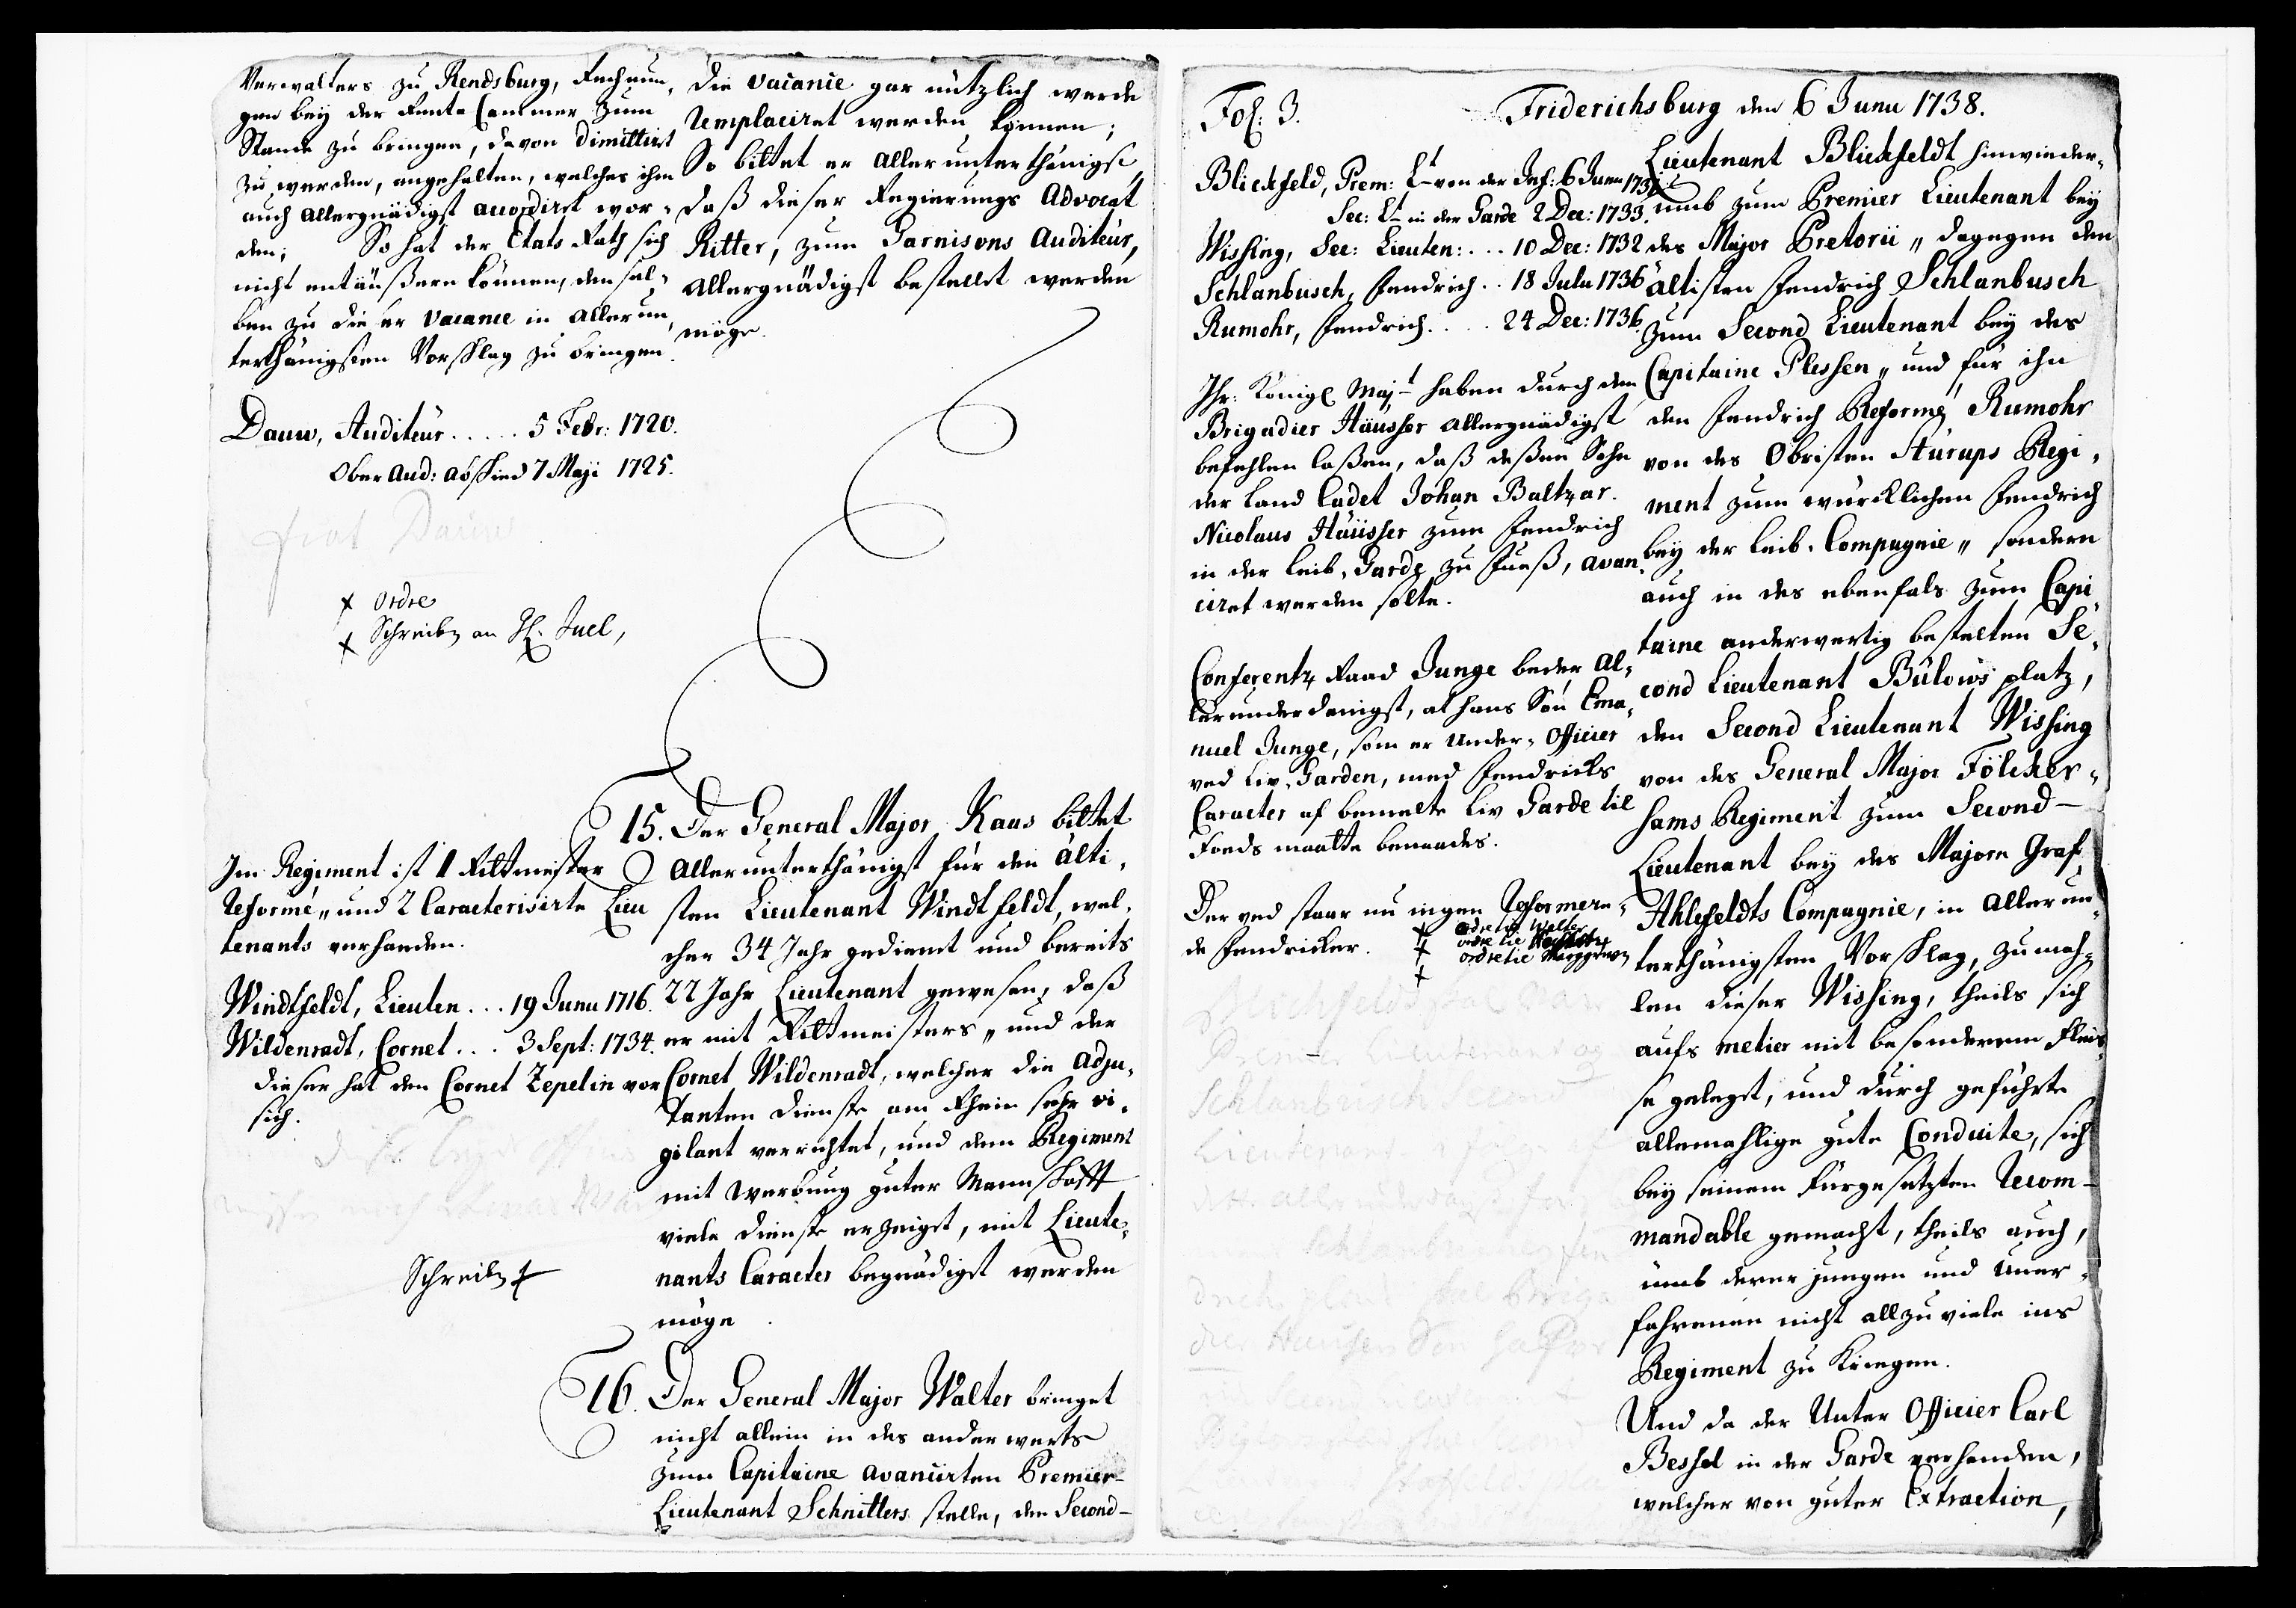 Verwalters zu Rendsburg, Rechnun„
gen bey der Rente Cammer zum
Stande zu bringen, davon dimittiret
zu werden, angehalten, welches ihm
auch allergnädigst accordiret wor„
den; So hat der Etats Rath sich
nicht entäußern können, densel„
ben zu dieser Vacance in allerun„
terthänigsten Vorschlag zu bringen.
Dauw, Auditeur..... 5 Febr: 1720.
Ober Aud: abschied 7 Maji 1725.
fiat Dauw
x Ordre
x Schreiben an H. Juel,
Im Regiment ist 1 Rittmeister
reformé „ und 2 Caracterisirte Lieu
tenants verhanden.
Windtfeldt, Lieuten... 19 Junii 1716.
Wildenradt, Cornet... 3 Sept: 1734.
dieser hat den Cornet Zepelin vor
sich.
Schreiben x
die Vacance gar nützlich werde
remplaciret werden können;
So bittet er allerunterthänigst,
daß dieser Regierungs Advocat
Ritter, zum Garnisons Auditeur,
allergnädigst bestellet werden
möge.
15. Der General Major Kaas bittet
allerunterthänigst für den älti„
sten Lieutenant Windtfeldt, wel„
cher 34 Jahr gedienet und bereits
22 Jahr Lieutenant gewesen, daß
er mit Rittmeisters „ und der
Cornet Wildenradt, welcher die Adju„
tanten dienste am Rhein sehr vi„
gilant verrichtet, und dem Regiment
mit Werbung guter Mannschafft
viele dienste erzeiget, mit Lieute„
nants Caracter begnädiget werden
möge.
16. Der General Major Walter bringet
nicht allein in des anderwerts
zum Capitaine avancirten Premier-
Lieutenant Schnitters stelle, den Second-
Fol: 3. Friderichsburg den 6 Junii 1738.
Blickfeld, Prem: Lt von der Inf: 6 Junii 1738
Sec: Lt in der Garde 2 Dec: 1733.
Wissing, Sec: Lieuten:... 10 Dec: 1732
Schlanbusch, Fendrich.. 18 Julii 1736
Rumohr, Fendrich.... 24 Dec: 1736.
Ihr: Königl Majt haben durch den
Brigadier Häusser allergnädigst
befehlen laßen, daß deßen Sohn
der Land Cadet Johan Baltzar
Nicolaus Häusser zum Fendrich
in der Leib-Garde zu Fueß, avan„
ciret werden solte.
Conferentz Raad Junge beder al„
lerunderdanigst, at hans Søn Ema„
nuel Junge, som er Under-Officier
ved Liv-Garden, med Fendrichs
Caracter af bemelte Liv Garde til
Foeds maatte benaades.
Der ved staar nu ingen reformere„
de Fendricker.
x ordre til Walter
x ordre til
x ordre til
Lieutenant Blickfeldt hinwieder„
umb zum Premier Lieutenant bey
des Major Pretorii „ dagegen den
ältisten Fendrich Schlanbusch
zum Second Lieutenant bey des
Capitaine Plessen „ und für ihn
den Fendrich Reformé Rumohr
von des Obristen Sturups Regi„
ment zum würcklichen Fendrich
bey der Leib-Compagnie „ sondern
auch in des ebenfals zum Capi„
taine anderwertig bestelten Se„
cond Lieutenant Bülows platz,
den Second Lieutenant Wissing
von des General Major Fölcker„
sams Regiment zum Second-
Lieutenant bey des Majorn Graf
Ahlefeldts Compagnie, in allerun„
terthänigsten Vorschlag, zumah„
len dieser Wissing, theils sich
aufs metier mit besonderem Fleis„
se geleget, und durch geführte
allemahlige gute Conduite, sich
bey seinem Fürgesetzten recom-
mandable gemacht, theils auch,
umb derer jungen und uner„
fahrenen nicht allzu viele ins
Regiment zu kriegen.
Und da der Unter Officier Carl
Bessel in der Garde verhanden,
welcher von guter Extraction,